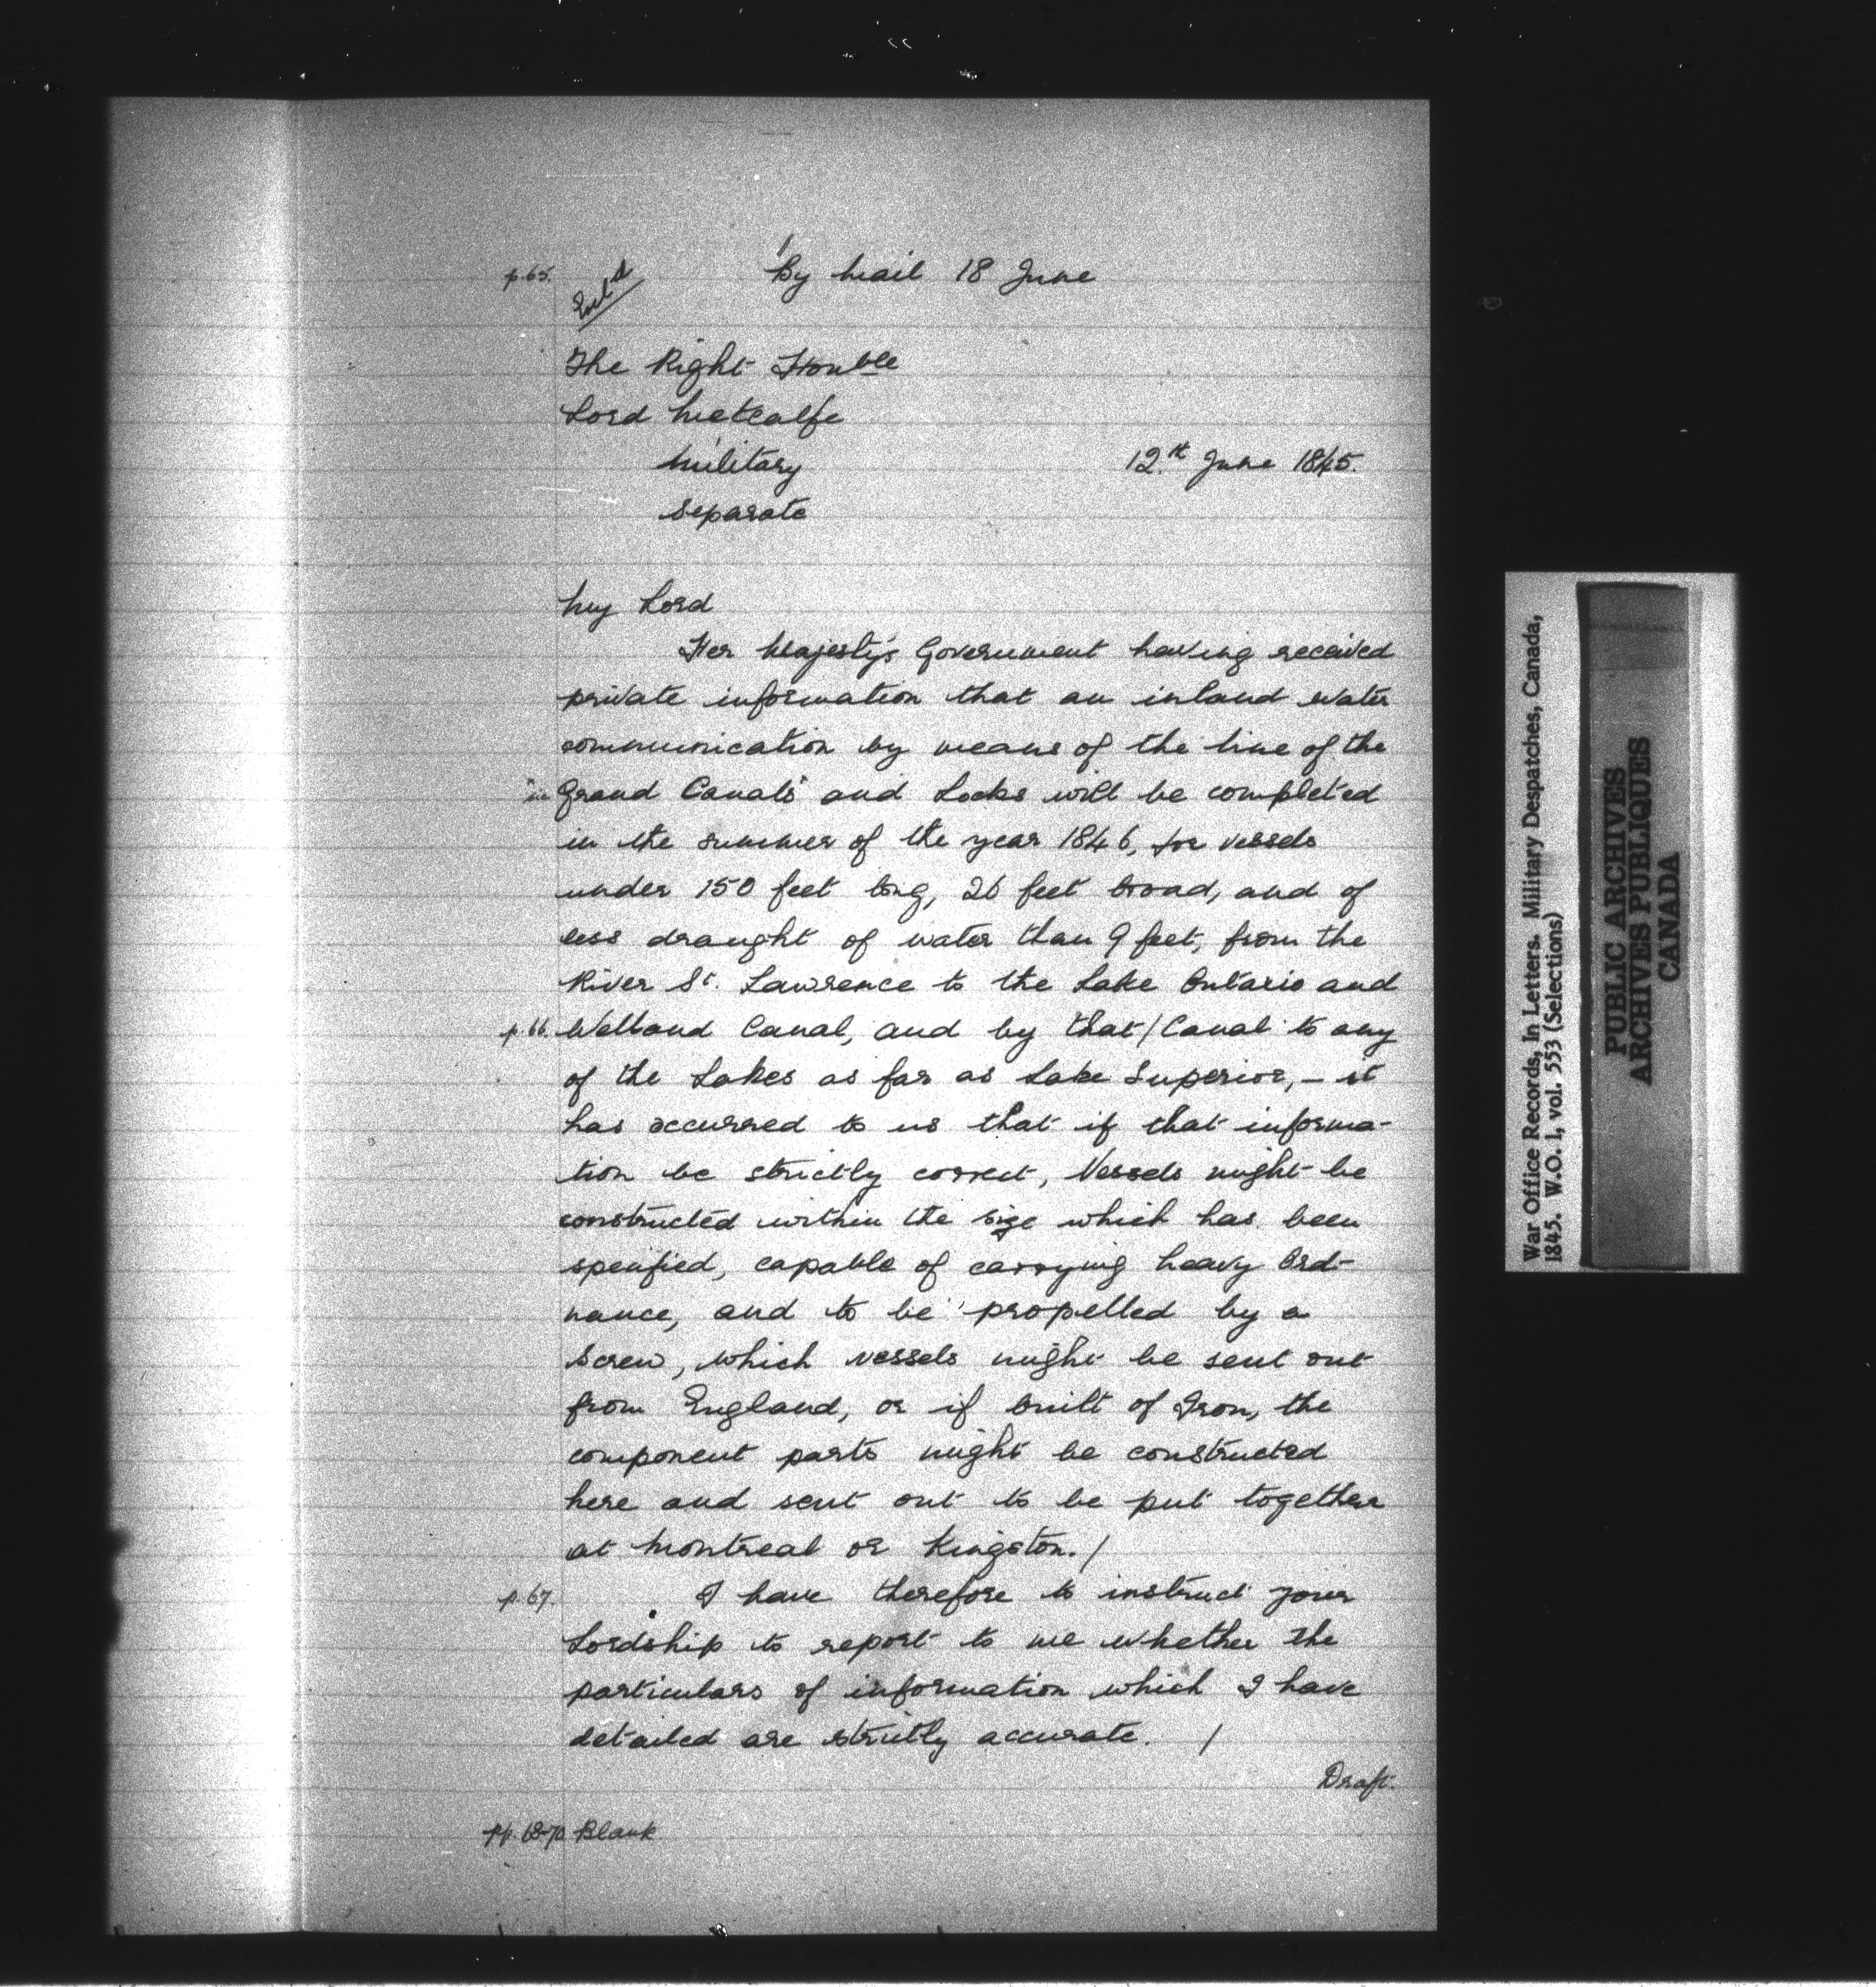 p.65. Encl^d By Mail 18 June
The Right Honble
Lord Metcalfe
Military 12.th June 1845.
Separate
My Lord
Her Majesty's Government having received
private information that an inland water
communication by means of the line of the
Grand Canals and Locks will be completed
in the summer of the year 1846, for vessels
under 150 feet long, 26 feet broad, and of
less draught of water than 9 feet, from the
River St. Lawrence to the Lake Ontario and
p.66. Welland Canal, and by that / Canal to any
of the Lakes as far as Lake Superior, — it
has occurred to us that if that informa-
tion be strictly correct, Vessels might be
constructed within the size which has been
specified, capable of carrying heavy Ord-
nance, and to be propelled by a
Screw, which vessels might be sent out
from England, or if built of Iron, the
component parts might be constructed
here and sent out to be put together
at Montreal or Kingston. /
p.67. I have therefore to instruct your
Lordship to report to me whether the
particulars of information which I have
detailed are strictly accurate. /
Draft.
pp. 68-70 Blank
War Office Records, In Letters. Military Despatches, Canada,
1845. W.O. 1, vol. 553 (Selections)
PUBLIC ARCHIVES
ARCHIVES PUBLIQUES
CANADA